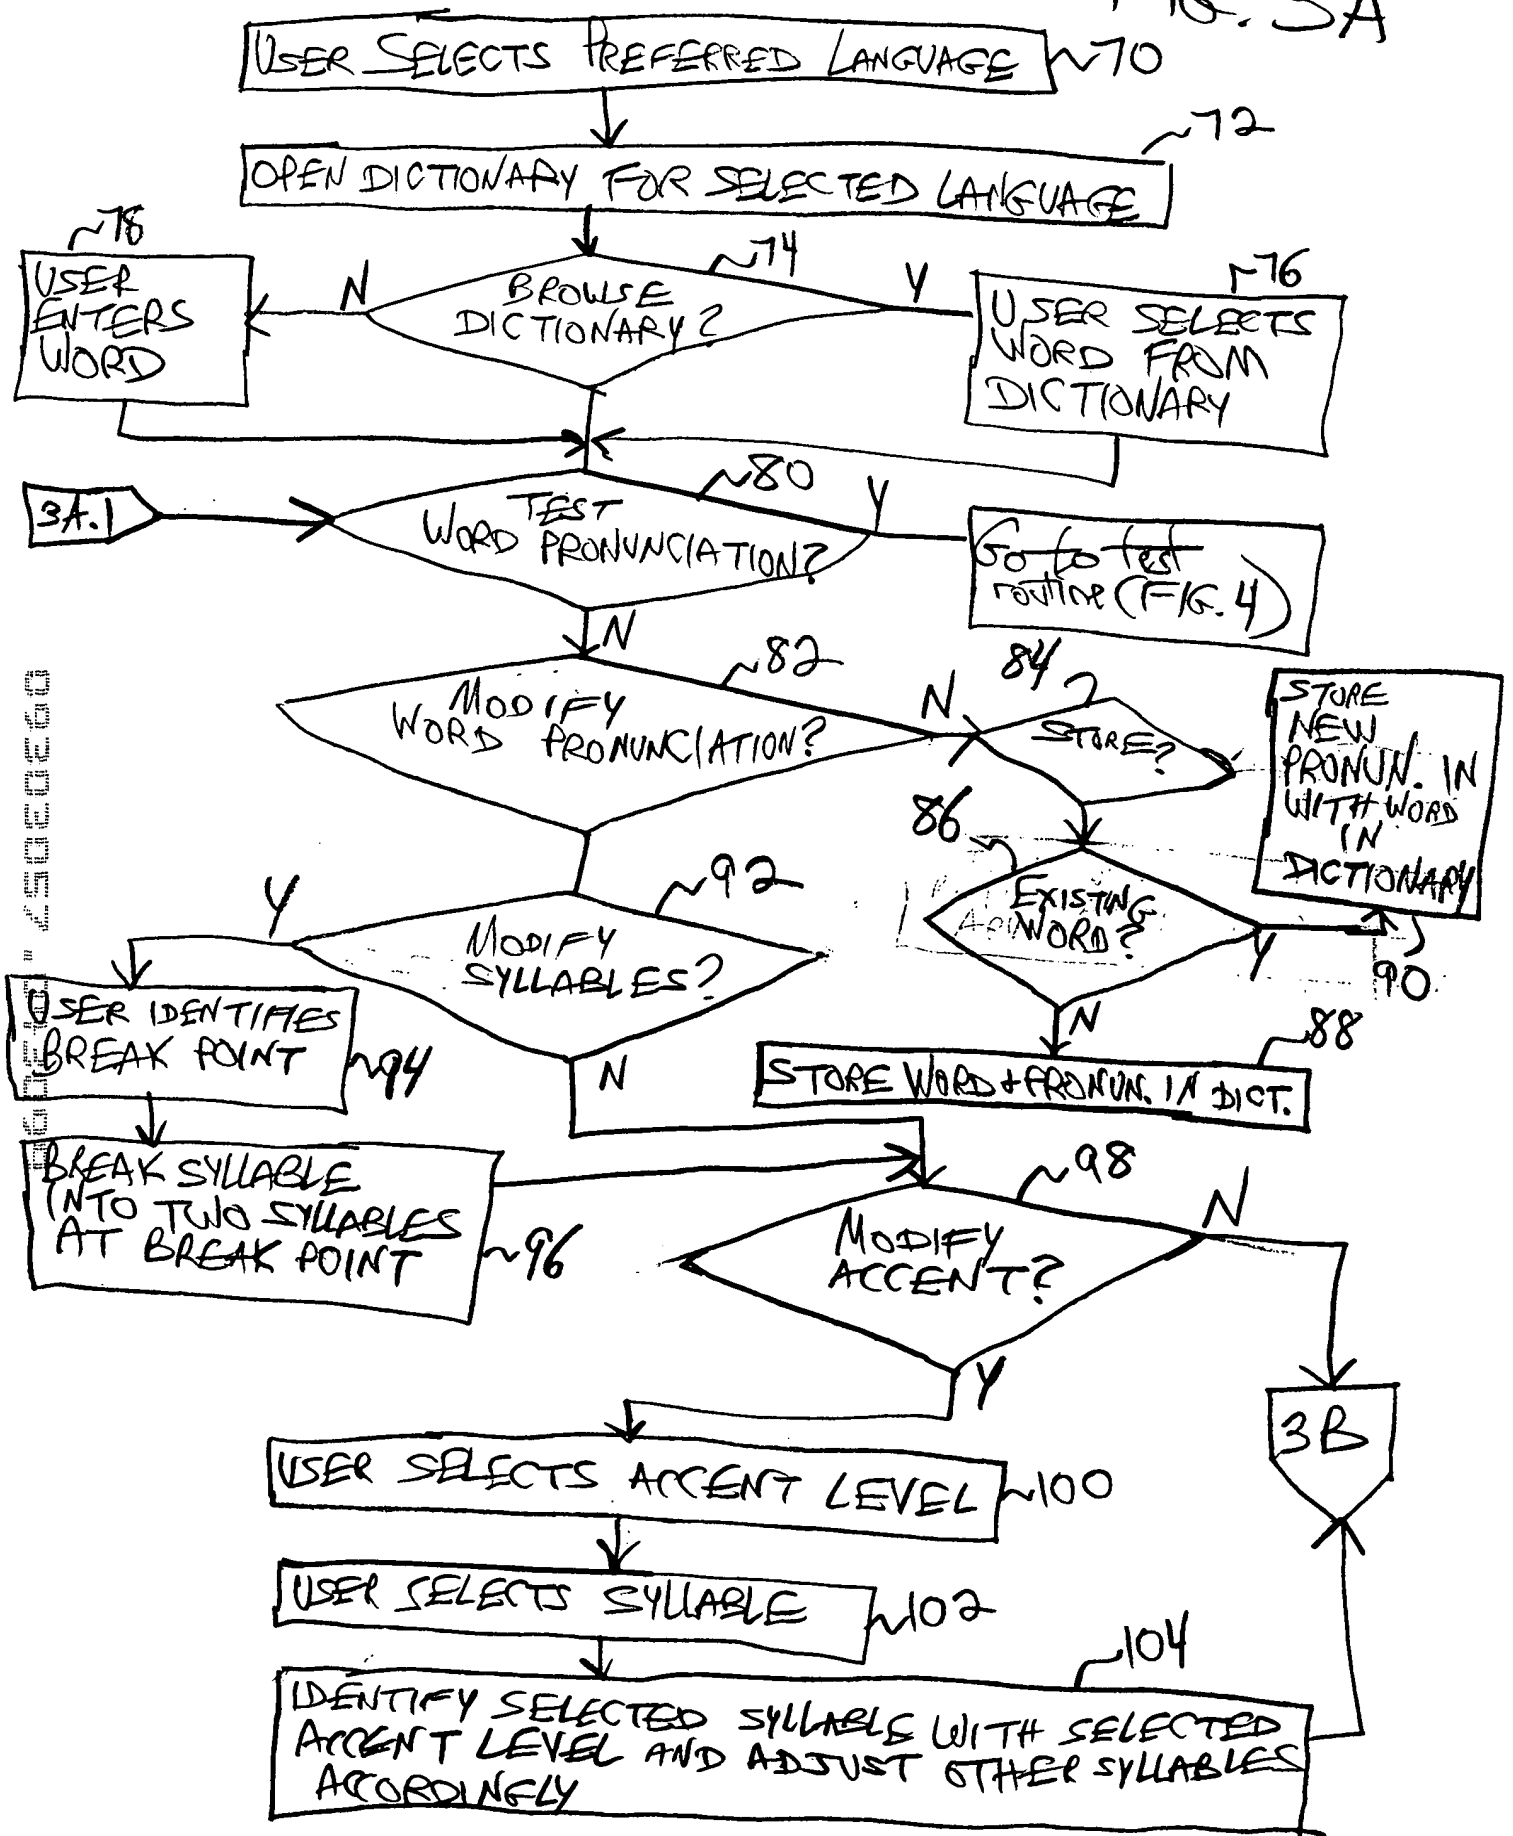 FIG. 3A
USER SELECTS PREFERRED LANGUAGE
70
72
OPEN DICTIONARY FOR SELECTED LANGUAGE
78
74
76
USER
ENTERS
WORD
N
BROWSE
DICTIONARY?
Y
USER SELECTS
WORD FROM
DICTIONARY
80
3A.1
TEST
WORD PRONUNCIATION?
Y
Go to test
routine (FIG. 4)
N
82
84
MODIFY
WORD PRONUNCIATION?
N
STORE?
STORE
NEW
PRONUN. IN
WITH WORD
IN
DICTIONARY
86
92
Y
MODIFY
SYLLABLES?
EXISTING
WORD?
Y
90
USER IDENTIFIES
BREAK POINT
94
N
N
88
STORE WORD + PRONUN. IN DICT.
BREAK SYLLABLE
INTO TWO SYLLABLES
AT BREAK POINT
96
98
MODIFY
ACCENT?
N
Y
3B
USER SELECTS ACCENT LEVEL
100
USER SELECTS SYLLABLE
102
104
IDENTIFY SELECTED SYLLABLE WITH SELECTED
ACCENT LEVEL AND ADJUST OTHER SYLLABLES
ACCORDINGLY